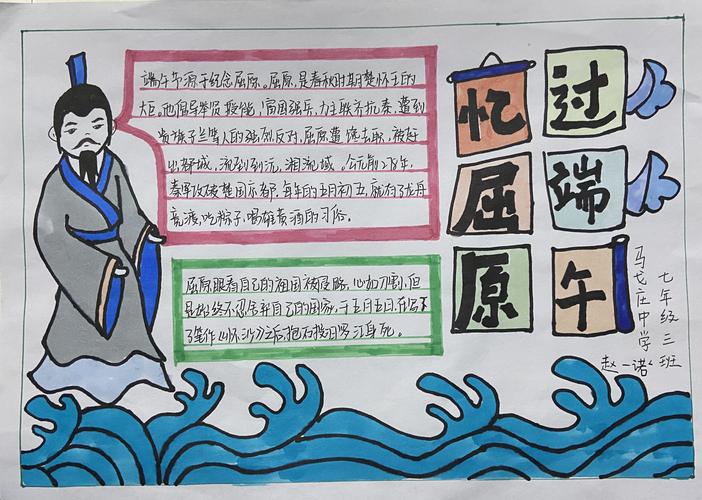 过端午
忆屈原
端午节源于纪念屈原。屈原,是春秋时期楚怀王的
大臣。他倡导举贤授能,富国强兵,力主联齐抗秦,遭到
贵族子兰等人的强烈反对,屈原遭馋去职,被赶
出都城,流到到沅,湘流域。公元前278年,
秦军攻破楚国京都。每年的五月初五,就有了龙舟
竞渡,吃粽子,喝雄黄酒的习俗。
屈原眼看自己的祖国被侵略,心如刀割,但
是始终不忍舍弃自己的国家,于五月五日,在写下
了笔作《怀沙》之后,抱石投汨罗江身死。
马戈庄中学
七年级三班
赵一诺